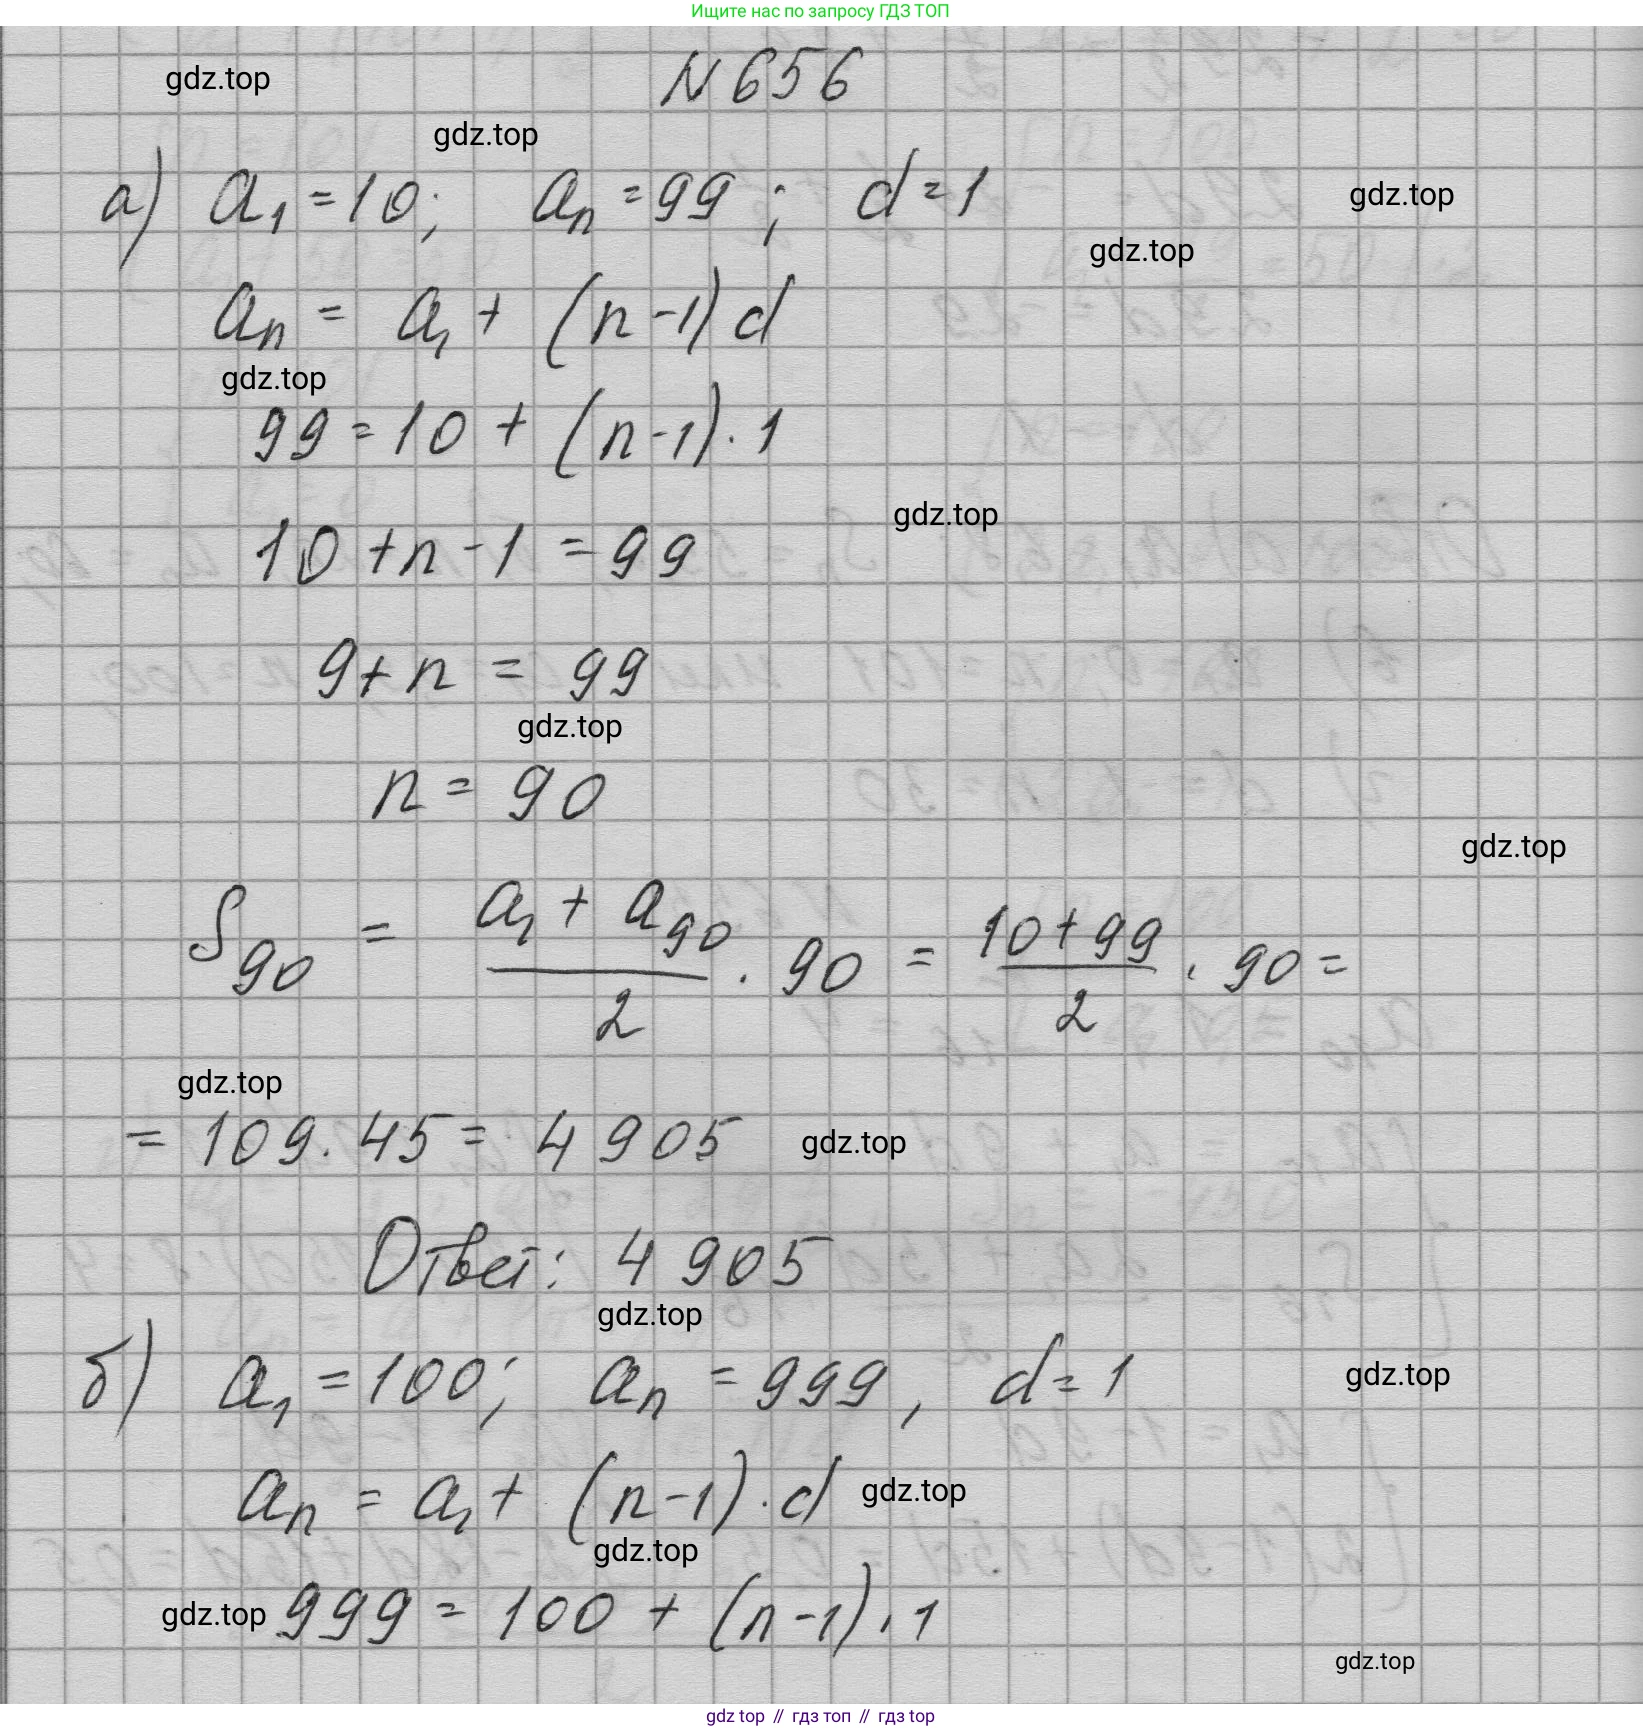 Ищите нас по запросу ГДЗ ТОП
N 656
gdz.top
gdz.top
а) a₁ = 10; aₙ = 99; d = 1
gdz.top
gdz.top
aₙ = a₁ + (n - 1) d
gdz.top
99 = 10 + (n - 1) · 1
gdz.top
10 + n - 1 = 99
9 + n = 99
gdz.top
n = 90
gdz.top
S₉₀ = (a₁ + a₉₀)/2 · 90 = (10 + 99)/2 · 90 =
gdz.top
= 109 · 45 = 4905
gdz.top
Ответ: 4905
gdz.top
б) a₁ = 100; aₙ = 999, d = 1
gdz.top
aₙ = a₁ + (n - 1) · d
gdz.top
gdz.top
gdz.top
999 = 100 + (n - 1) · 1
gdz.top
gdz top // гдз топ // гдз top